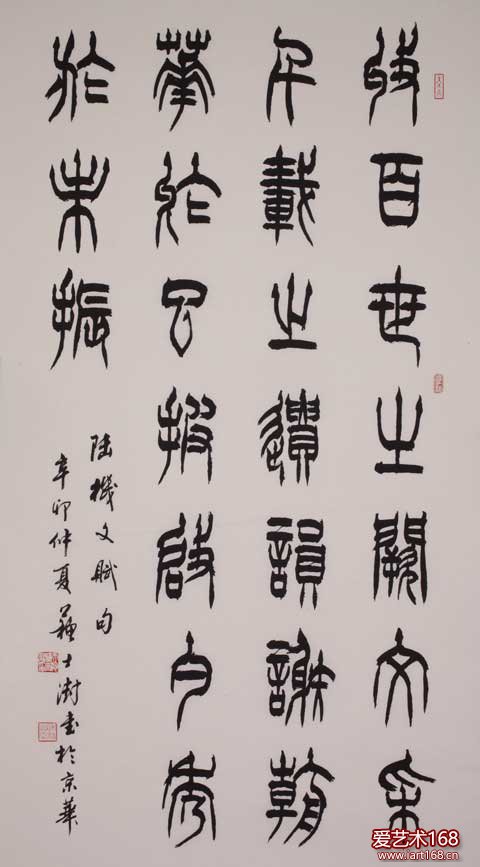 收百世之闕文采
千載之遺韻謝朝
華於已披啟夕秀
於未振
陸機文賦句
辛卯仲夏蘇士澍書於京華
爱艺术168
www.iart168.cn